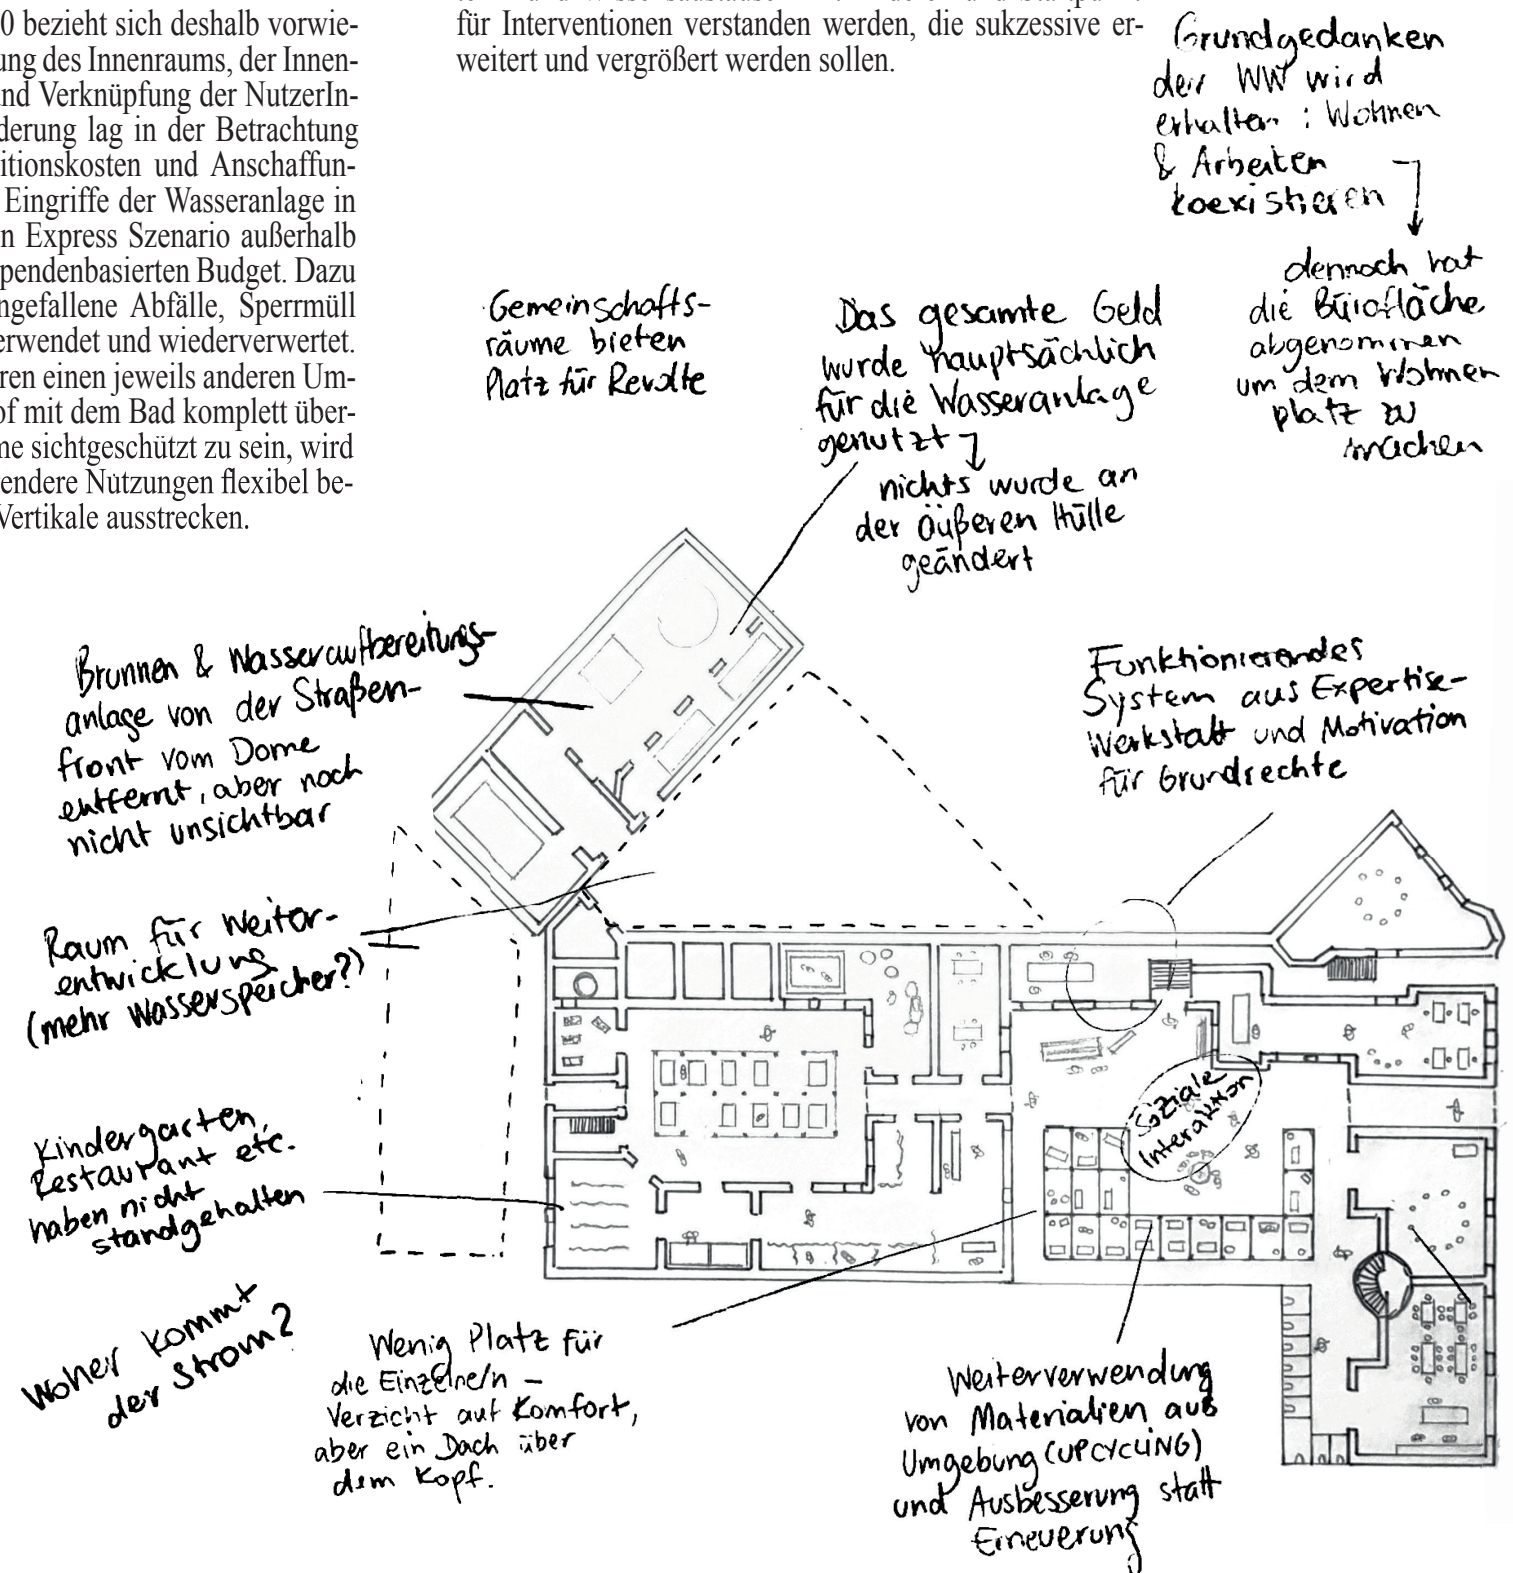 0 bezieht sich deshalb vorwie-
ung des Innenraums, der Innen-
und Verknüpfung der NutzerIn-
derung lag in der Betrachtung
itionskosten und Anschaffun-
Eingriffe der Wasseranlage in
n Express Szenario außerhalb
pendenbasierten Budget. Dazu
ngefallene Abfälle, Sperrmüll
erwendet und wiederverwertet.
ren einen jeweils anderen Um-
of mit dem Bad komplett über-
me sichtgeschützt zu sein, wird
endere Nutzungen flexibel be-
Vertikale ausstrecken.
für Interventionen verstanden werden, die sukzessive er-
weitert und vergrößert werden sollen.
Grundgedanken
der WW wird
erhalten : Wohnen
& Arbeiten
koexistieren
dennoch hat
die Bürofläche
abgenommen
um dem Wohnen
platz zu
machen
Gemeinschafts-
räume bieten
Platz für Revolte
Das gesamte Geld
wurde hauptsächlich
für die Wasseranlage
genutzt
nichts wurde an
der äußeren Hülle
geändert
Brunnen & Wasseraufbereitungs-
anlage von der Straßen-
front vom Dome
entfernt, aber noch
nicht unsichtbar
Funktionierendes
System aus Expertise-
Werkstatt und Motivation
für Grundrechte
Raum für Weiter-
entwicklung
(mehr Wasserspeicher?)
Soziale
Interaktion
Kindergarten,
Restaurant etc.
haben nicht
standgehalten
Woher kommt
der Strom?
Wenig Platz für
die Einzelne/n –
Verzicht auf Komfort,
aber ein Dach über
dem Kopf.
Weiterverwendung
von Materialien aus
Umgebung (UPCYCLING)
und Ausbesserung statt
Erneuerung